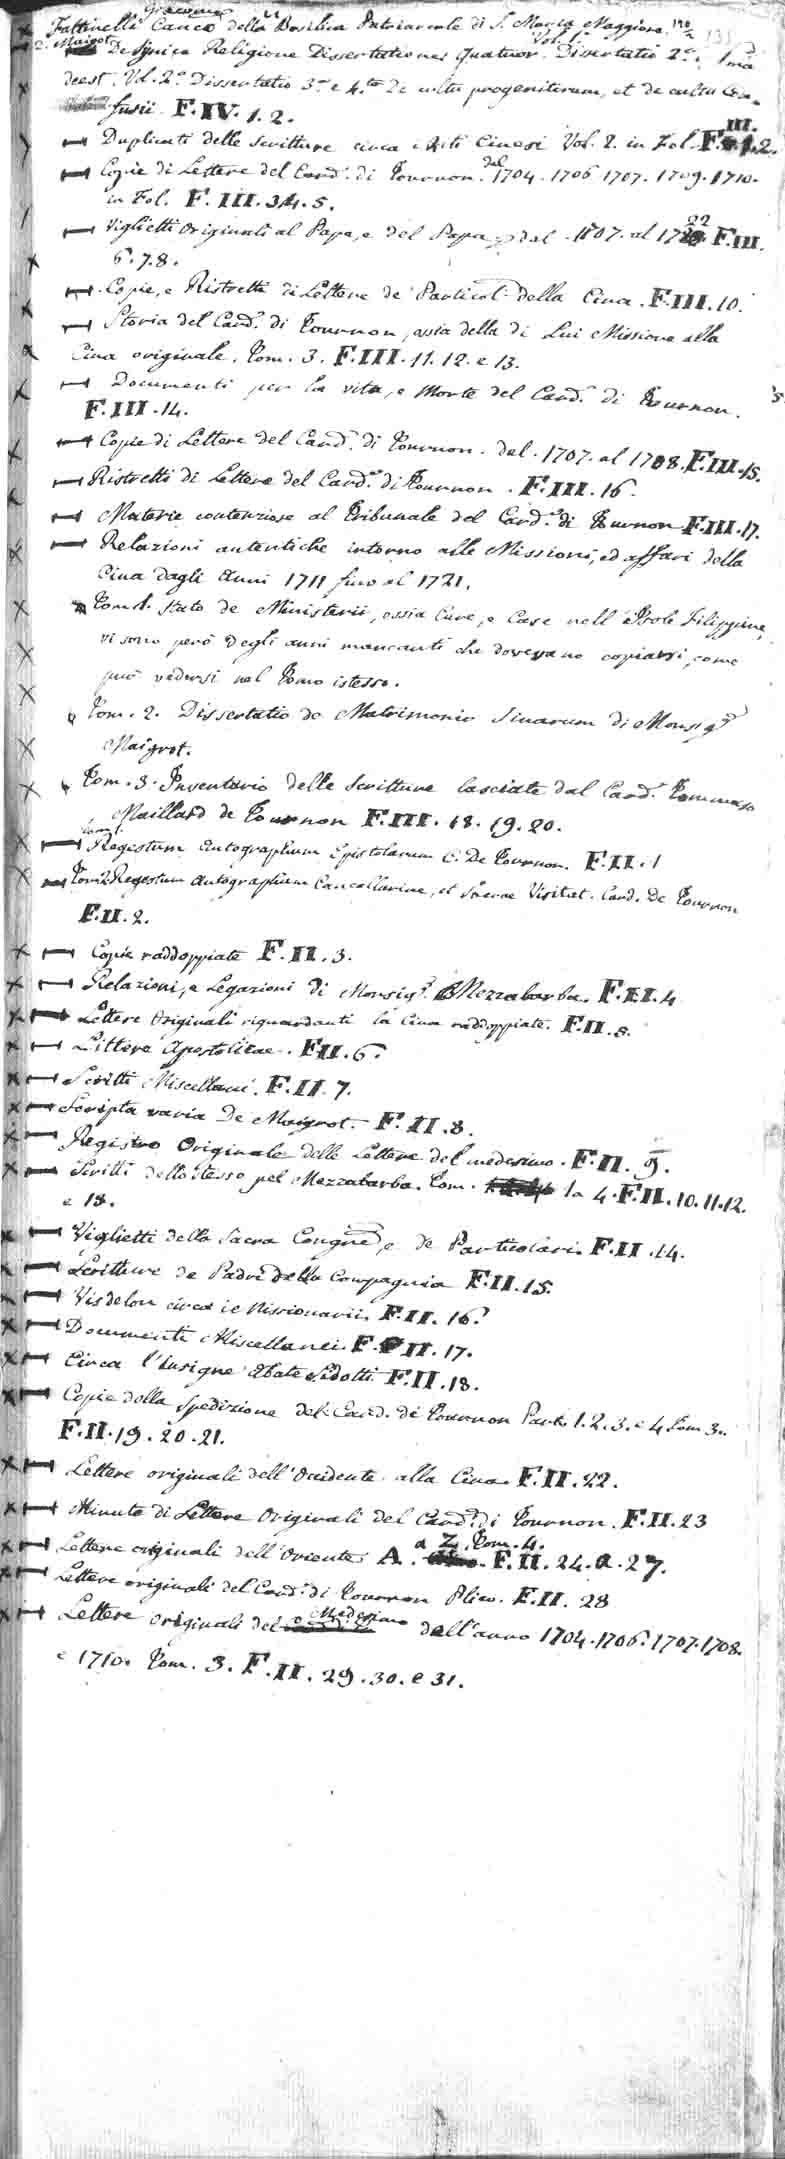 Giacomo
Fattinelli Canco della Basilica Patriarcale di S. Maria Maggiore.
Maigrot De Synica Religione Dissertationes Quatuor. Vol. 1º Dissertatio 2ª, 1ma
deest. Vol. 2º Dissertatio 3ª e 4ta De cultu progenitorum, et de cultu Con-
fusii F.IV. 1. 2.
Duplicati delle Scritture circa i Riti Cinesi Vol. 2. in Fol. F.III. 1. 2.
Copie di Lettere del Card. di Tournon. dal 1704. 1706. 1707. 1709. 1710.
in Fol. F. III. 3. 4. 5.
Viglietti Originali al Papa, e del Papa dal 1707. al 1722 F.III.
6. 7. 8.
Copie, e Ristretti di Lettere de' Particol. della Cina. F.III. 10.
Storia del Card. di Tournon, ossia della di Lui Missione alla
Cina originale. Tom. 3. F.III. 11. 12. e 13.
Documenti per la vita, e Morte del Card. di Tournon.
F.III. 14.
Copie di Lettere del Card. di Tournon. dal 1707. al 1708. F.III. 15.
Ristretti di Lettere del Card. di Tournon. F.III. 16.
Materie contenziose al Tribunale del Card. di Tournon F.III. 17.
Relazioni autentiche intorno alle Missioni, ed affari della
Cina dagli Anni 1711 fino al 1721.
Tom. 1. Stato de Ministerii, ossia Cure, e Case nell' Isole Filippine,
vi sono però degli anni mancanti che dovevano copiarsi, come
può vedersi nel Tomo istesso.
Tom. 2. Dissertatio de Matrimonio Sinarum di Monsigr
Maigrot.
Tom. 3. Inventario delle Scritture lasciate dal Card. Tommaso
Maillard de Tournon F.III. 18. 19. 20.
Tom. 1. Regestum Autographum Epistolarum C. De Tournon. F.II. 1
Tom. 2. Regestum Autographum Cancellariae, et Sacrae Visitat. Card. De Tournon
F.II. 2.
Copie raddoppiate F.II. 3.
Relazioni, e Legazioni di Monsigr. Mezzabarba. F.II. 4
Lettere Originali riguardanti la Cina raddoppiate. F.II. 5.
Littere Apostolicae. F.II. 6.
Scritti Miscellanei. F.II. 7.
Scripta varia De Maigrot. F.II. 8.
Registro Originale delle Lettere del medesimo. F.II. 9.
Scritti dello stesso pel Mezzabarba. Tom. 1 a 4. F.II. 10. 11. 12.
e 13.
Viglietti della Sacra Congne, e de Particolari. F.II. 14.
Scritture de Padri della Compagnia F.II. 15.
Visdelou circa i Missionarii. F.II. 16.
Documenti Miscellanei. F.II. 17.
Circa l'insigne Abate Sidotti. F.II. 18.
Copie della Spedizione del Card. di Tournon Part. 1. 2. 3. e 4 Tom. 3.
F.II. 19. 20. 21.
Lettere originali dell' Occidente alla Cina. F.II. 22.
Minute di Lettere Originali del Card. di Tournon. F.II. 23
Lettere originali dell' Oriente A. a Z. Tom. 4. F.II. 24. a. 27.
Lettere originali del Card. di Tournon Plico. F.II. 28
Lettere originali del Medesimo dell' anno 1704. 1706. 1707. 1708.
e 1710. Tom. 3. F.II. 29. 30. e 31.